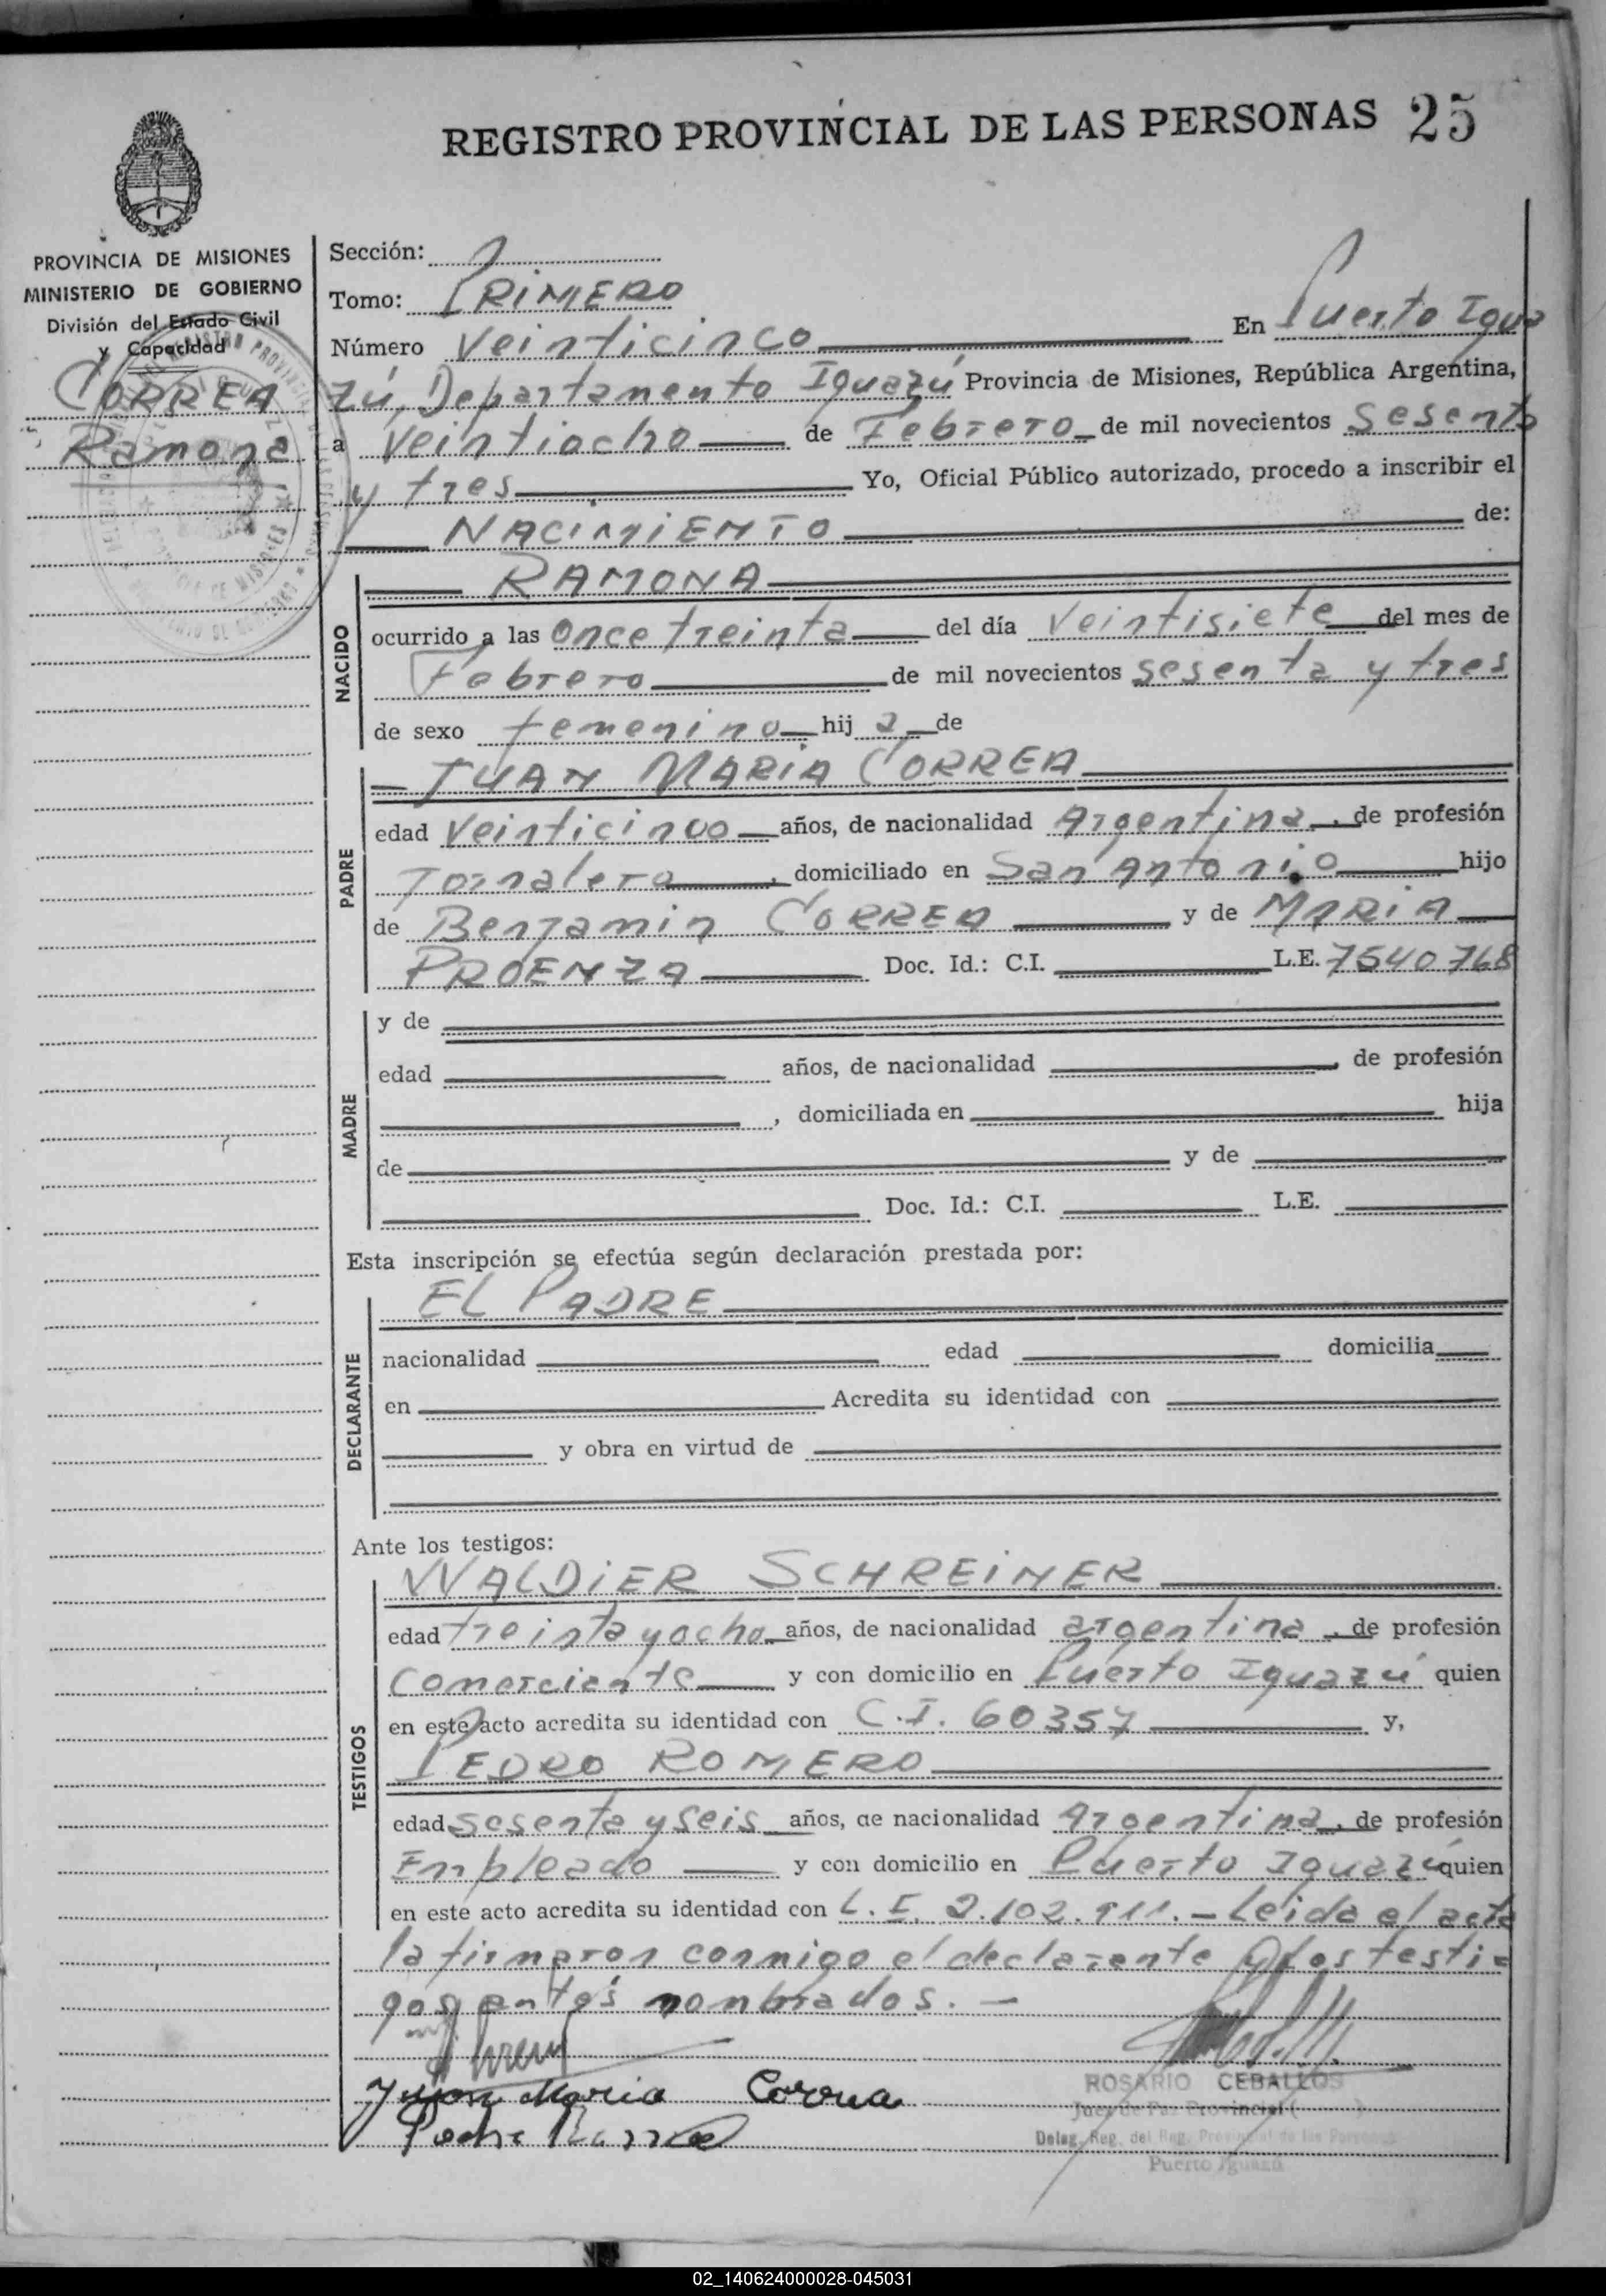 REGISTRO PROVINCIAL DE LAS PERSONAS 25
PROVINCIA DE MISIONES
MINISTERIO DE GOBIERNO
División del Estado Civil
y Capacidad
CORREA
Ramona
Sección:
Tomo: PRIMERO
Número Veinticinco En Puerto Igua
zú, Departamento Iguazú Provincia de Misiones, República Argentina,
a Veintiocho de Febrero de mil novecientos Sesenta
y tres Yo, Oficial Público autorizado, procedo a inscribir el
NACIMIENTO de:
NACIDO
RAMONA
ocurrido a las Once treinta del día Veintisiete del mes de
Febrero de mil novecientos sesenta y tres
de sexo femenino hij a de
PADRE
JUAN MARIA CORREA
edad Veinticinco años, de nacionalidad Argentina, de profesión
Jornalero, domiciliado en San Antonio hijo
de Benjamin CORREA y de MARIA
PROENZA Doc. Id.: C.I. L.E. 7540768
MADRE
y de
edad años, de nacionalidad , de profesión
, domiciliada en hija
de y de
Doc. Id.: C.I. L.E.
Esta inscripción se efectúa según declaración prestada por:
DECLARANTE
EL PADRE
nacionalidad edad domicilia
en Acredita su identidad con
y obra en virtud de
Ante los testigos:
TESTIGOS
WALDIER SCHREINER
edad treinta y ocho años, de nacionalidad argentina, de profesión
Comerciante y con domicilio en Puerto Iguazú quien
en este acto acredita su identidad con C.I. 60357 y,
PEDRO ROMERO
edad sesenta y seis años, de nacionalidad Argentina, de profesión
Empleado y con domicilio en Puerto Iguazú quien
en este acto acredita su identidad con L.E. 2.102.911. - Leida el acta
la firmaron conmigo el declarante y los testi=
gos antes nombrados. -
Juan Maria Correa
ROSARIO CEBALLOS
Juez de Paz Provincial ( )
Deleg. Reg. del Reg. Provincial de las Personas
Puerto Iguazú
02_140624000028-045031